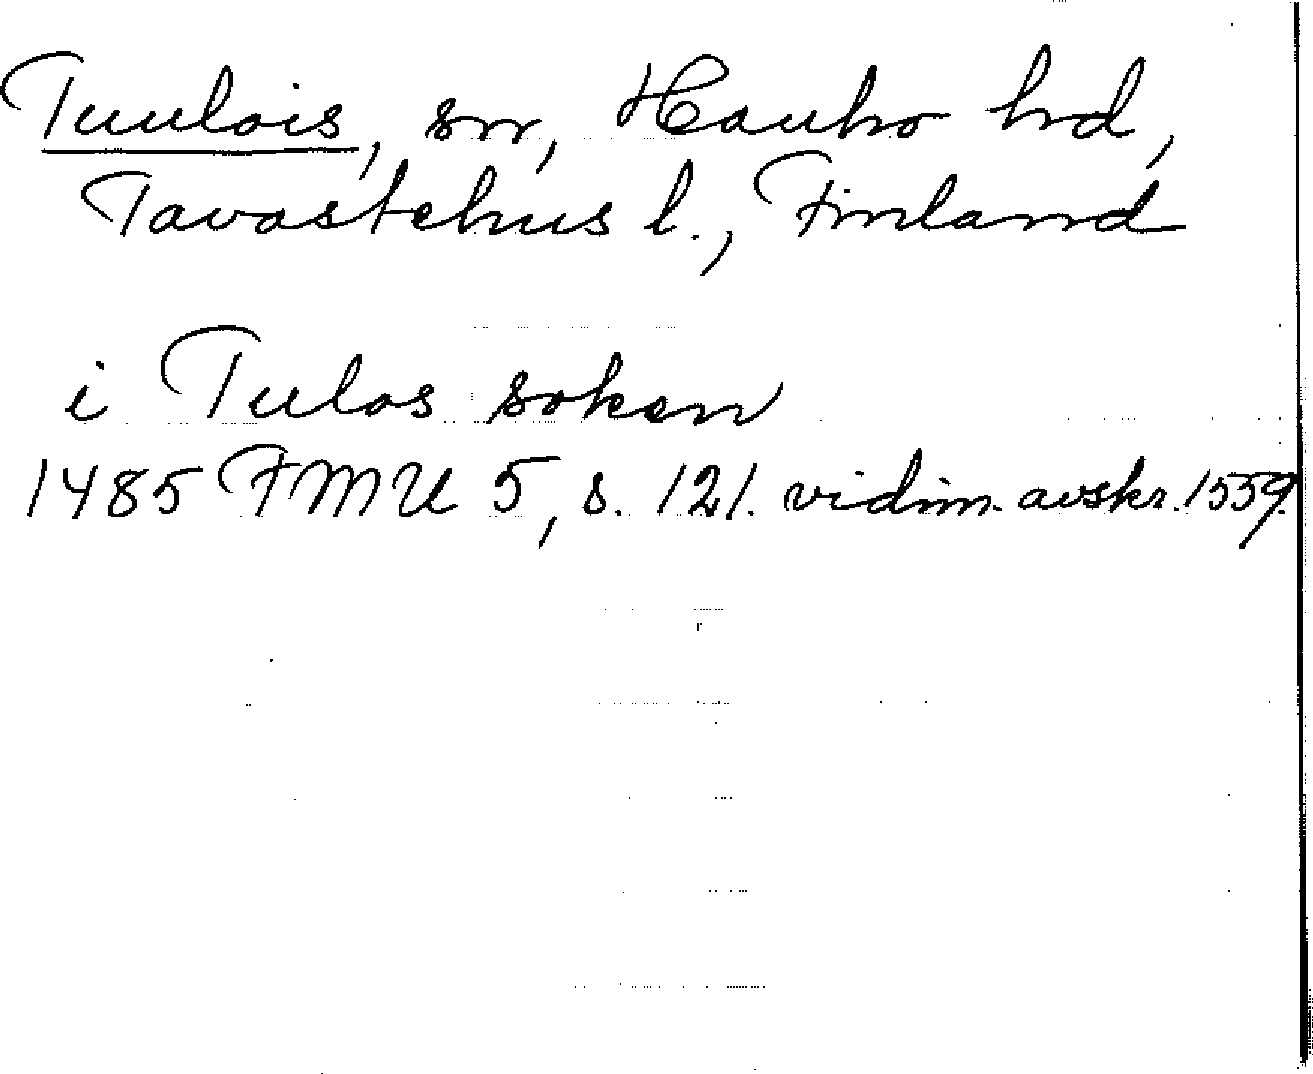 Tuulois, sn, Hauho hd,
Tavastehus l., Finland
i Tulos soken
1485 FMU 5, s. 121. vidim. avskr. 1559.